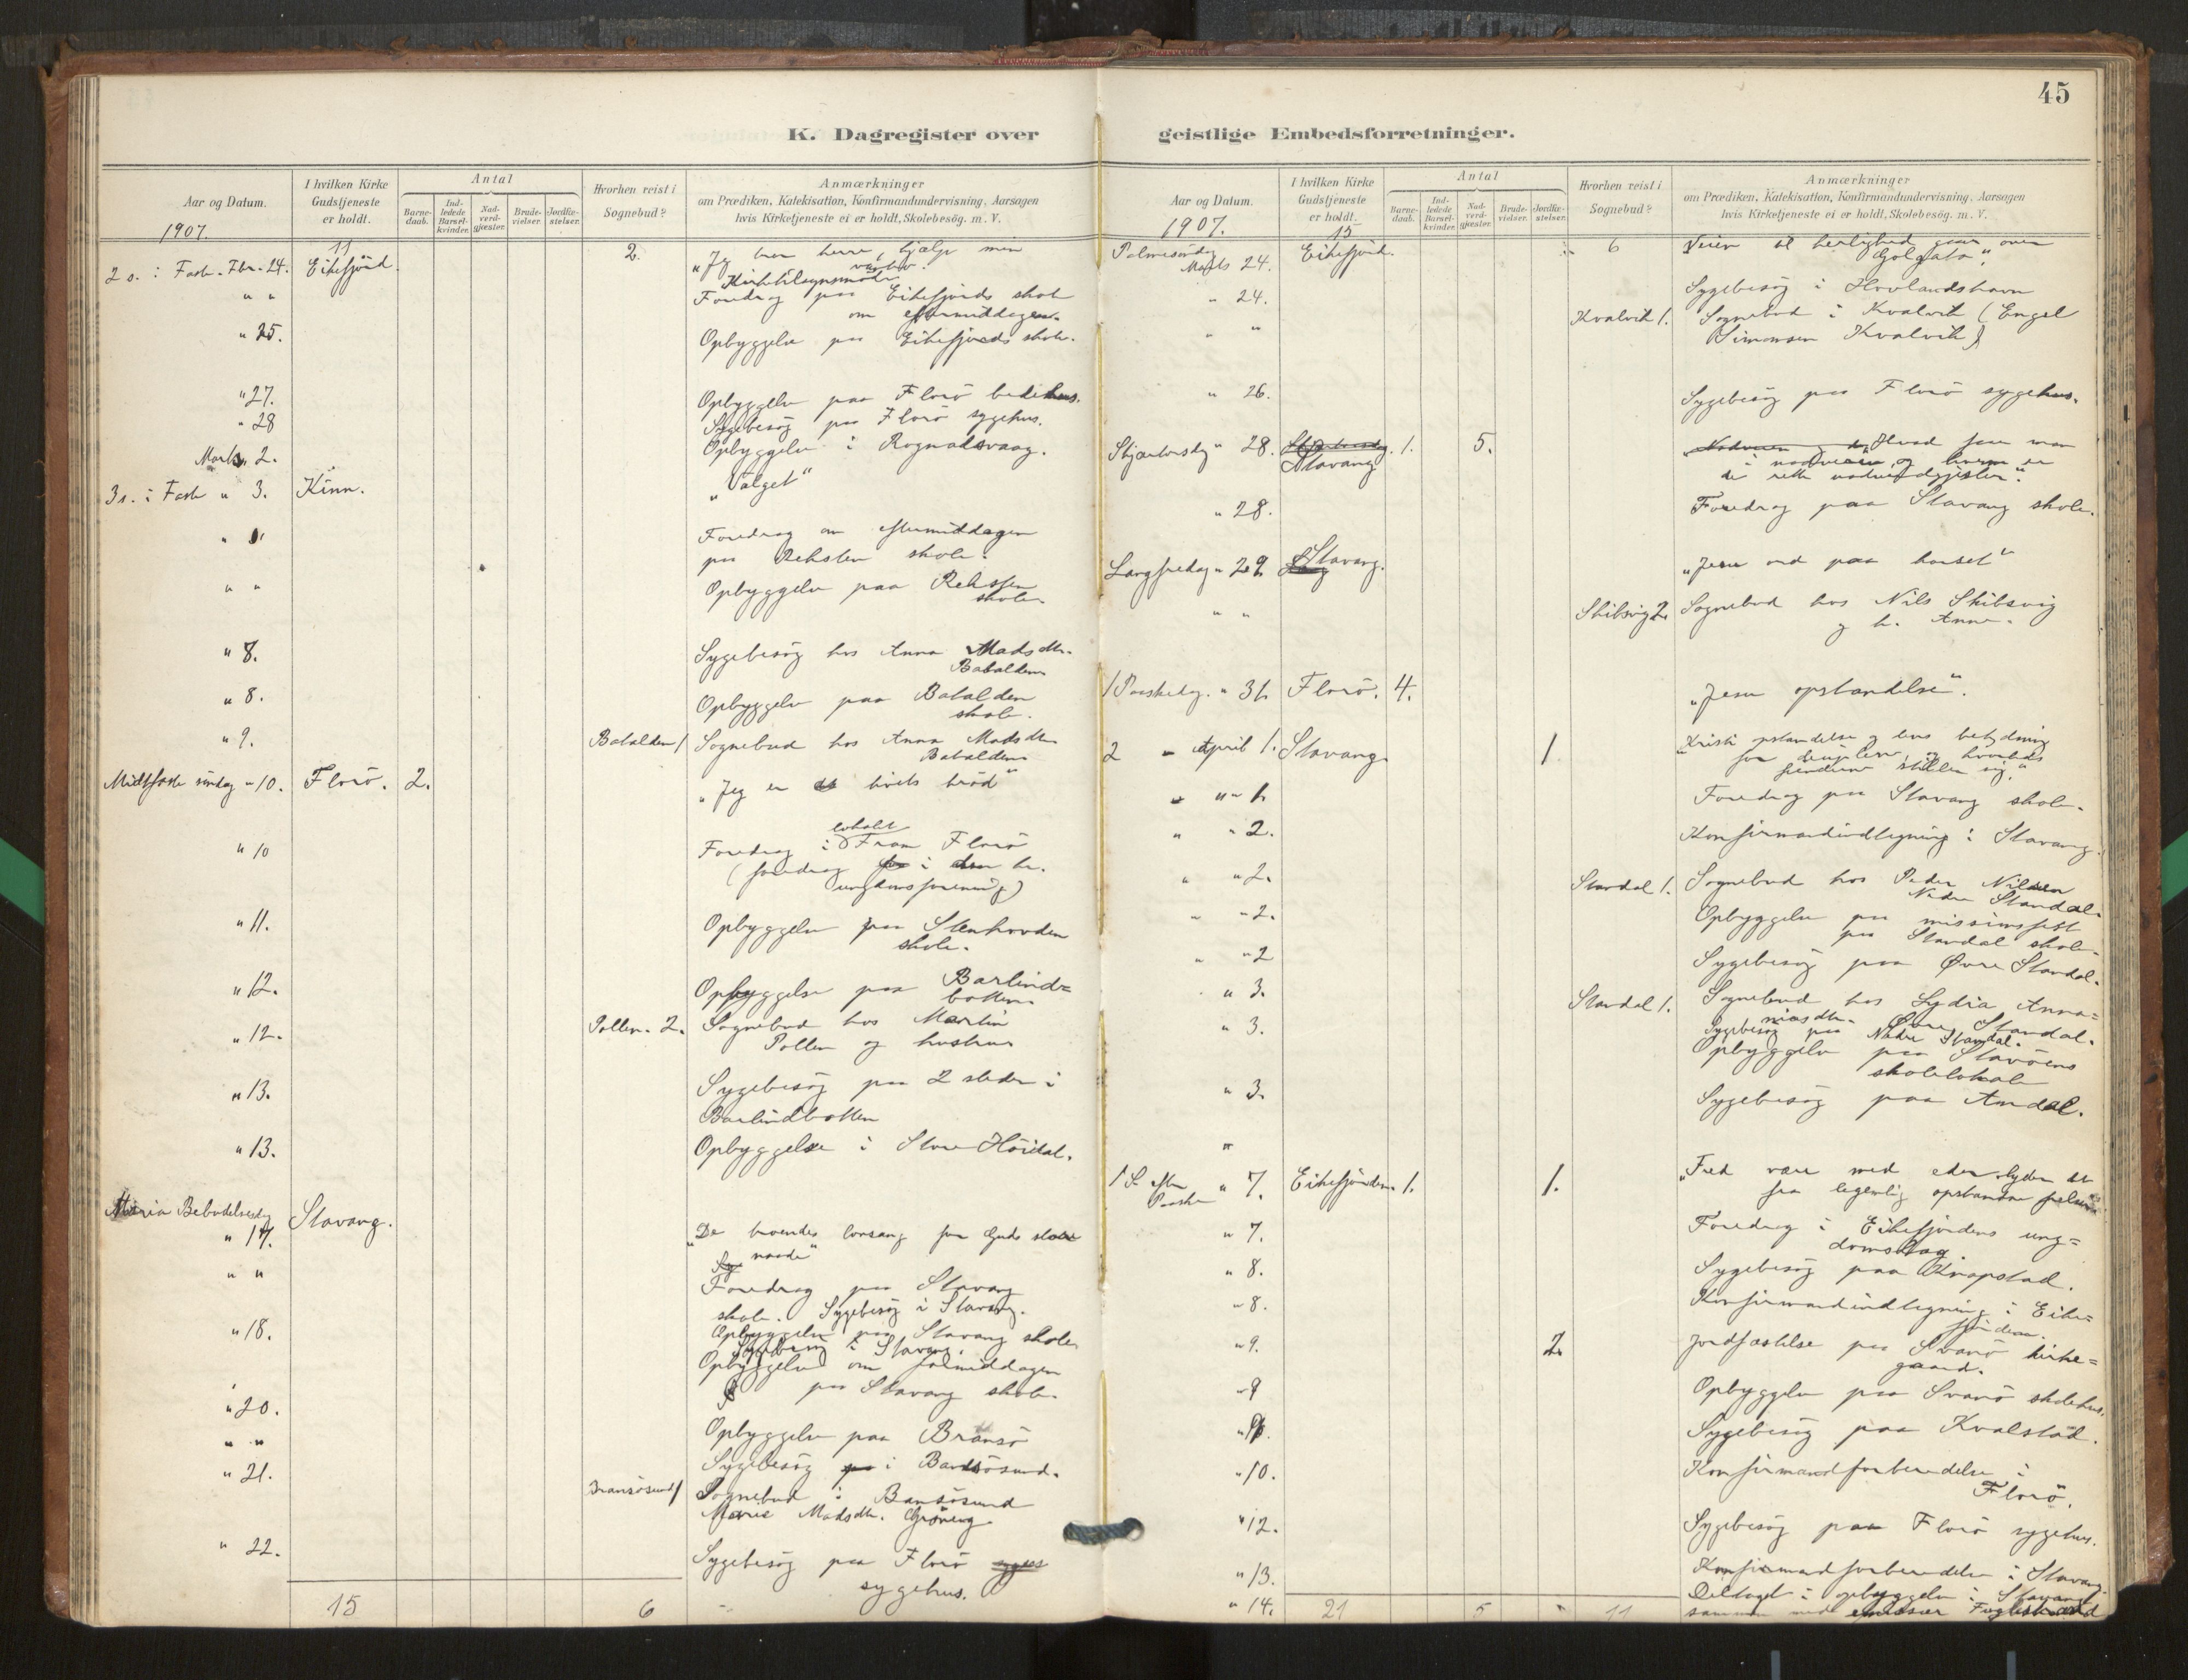 45
K. Dagregister over geistlige Embedsforretninger.
Aar og Datum.
1907.
I hvilken Kirke Gudstjeneste er holdt.
Antal
Barne-daab.
Ind-ledede Barsel-kvinder.
Nad-verd-gjæster.
Brude-vielser.
Jordfæ-stelser.
Hvorhen reist i Sognebud?
Anmærkninger
om Prædiken, Katekisation, Konfirmandundervisning, Aarsagen
hvis Kirketjeneste ei er holdt, Skolebesög. m. V.
11
2.
2 s. i Faste. Fbr. 24. Eikefjord. "Jeg tror herre, hjælp min
vantro".
Kirketilsynsmöde
" " Foredrag paa Eikefjords skole
om eftermiddagen.
" 25. Opbyggelse paa Eikefjords skole.
" 27. Opbyggelse paa Florö bedehus.
" 28 Sygebesög paa Florö sygehus.
Marts 2. Opbyggelse i Rognaldsvaag.
3 s. i Faste " 3. Kinn. "Valget"
Foredrag om eftermiddagen
paa Reksten skole.
" " Opbyggelse paa Reksten
skole.
" 8. Sygebesög hos Anna Madsdtr.
Batalden
" 8. Opbyggelse paa Batalden
skole.
" 9. Batalden 1 Sognebud hos Anna Madsdtr
Batalden
Midtfaste söndag " 10. Florö. 2. "Jeg er livets bröd"
" 10 Foredrag i lokalet Fram Florö
(foredrag i den h.
ungdomsforening)
" 11. Opbyggelse paa Stenhovden
skole.
" 12. Opbyggelse paa Barlind=
botten.
" 12. Pollen. 2. Sognebud hos Martin
Pollen og hustru
" 13. Sygebesög paa 2 steder i
Barlindbotten
" 13. Opbyggelse i Store Höidal.
Maria Bebudelsesdag
" 17. Stavang. "De troendes lovsang for Guds store
naade"
" " Foredrag paa Stavang
skole. Sygebesög i Stavang.
" 18. Opbyggelse paa Stavang skole
Sygebesög i Stavang.
Opbyggelse om formiddagen
paa Stavang skole.
" 20. Opbyggelse paa Bransö
" " Sygebesög i Bransösund.
" 21. Bransösund 1 Sognebud i Bansösund
Marie Madsdtr. Gröneng.
" 22. Sygebesög paa Florö
sygehus.
15 6
Aar og Datum.
1907.
I hvilken Kirke Gudstjeneste er holdt.
Antal
Barne-daab.
Ind-ledede Barsel-kvinder.
Nad-verd-gjæster.
Brude-vielser.
Jordfæ-stelser.
Hvorhen reist i Sognebud?
Anmærkninger
om Prædiken, Katekisation, Konfirmandundervisning, Aarsagen
hvis Kirketjeneste ei er holdt, Skolebesög. m. V.
15
6
Palmesöndag
Marts 24. Eikefjord. Veien til herlighed gaar over
Golgata".
" 24. Sygebesög i Hovlandshavn
" " Kvalvik 1. Sognebud i Kvalvik (Engel
Simonsen Kvalvik)
" 26. Sygebesög paa Florö sygehus.
Skjærtorsdag " 28. Stavang 1. 5. Hvad faar man
i nadveren, og hvem er
de rette nadverdgjester".
" 28. Foredrag paa Stavang skole.
Langfredag " 29. Stavang. "Jesu ord paa korset"
" " Skibsvig 2. Sognebud hos Nils Skibsvig
og h. Anne.
1 Paaskedag. " 31. Florö. 4. "Jesu opstandelse".
2 " April 1. Stavang. 1 "Kristi opstandelse og dens betydning
for disciplene, og hvorledes
fienderne stiller sig."
" " 1. Foredrag paa Stavang skole.
" " 2. Konfirmandindtegning i Stavang.
" " 2. Standal 1. Sognebud hos Peder Nilsen
Nedre Standal.
" " 2. Opbyggelse paa missionsfest
paa Standal skole.
" " 2 Sygebesög paa Övre Standal.
" 3. Standal 1. Sognebud hos Lydia Anna=
niasdtr. Övre Standal.
" 3. Sygebesög paa Nedre Standal.
Opbyggelse paa Stavöens
skolelokale
" 3. Sygebesög paa Amdal.
"
1 S. efter
Paaske " 7. Eikefjorden. 1. 1. "Fred være med eder lyder det
fra legemlig opstandne frelser".
" 7. Foredrag i Eikefjordens ung=
domslag.
" 8. Sygebesög paa Knapstad.
" 8. Konfirmandindtegning i Eike=
fjorden.
" 9. 2. Jordfæstelse paa Svanö kirke=
gaard.
" 9 Opbyggelse paa Svanö skolehus.
Sygebesög paa Kvalstad.
" 10. Konfirmandforberedelse i
Florö.
" 12. Sygebesög paa Florö sygehus.
" 13. Konfirmandforberedelse i Stavang.
" 14. Deltaget i opbyggelse i Stavang
sammen med emissær Fuglestrand
21 5 11